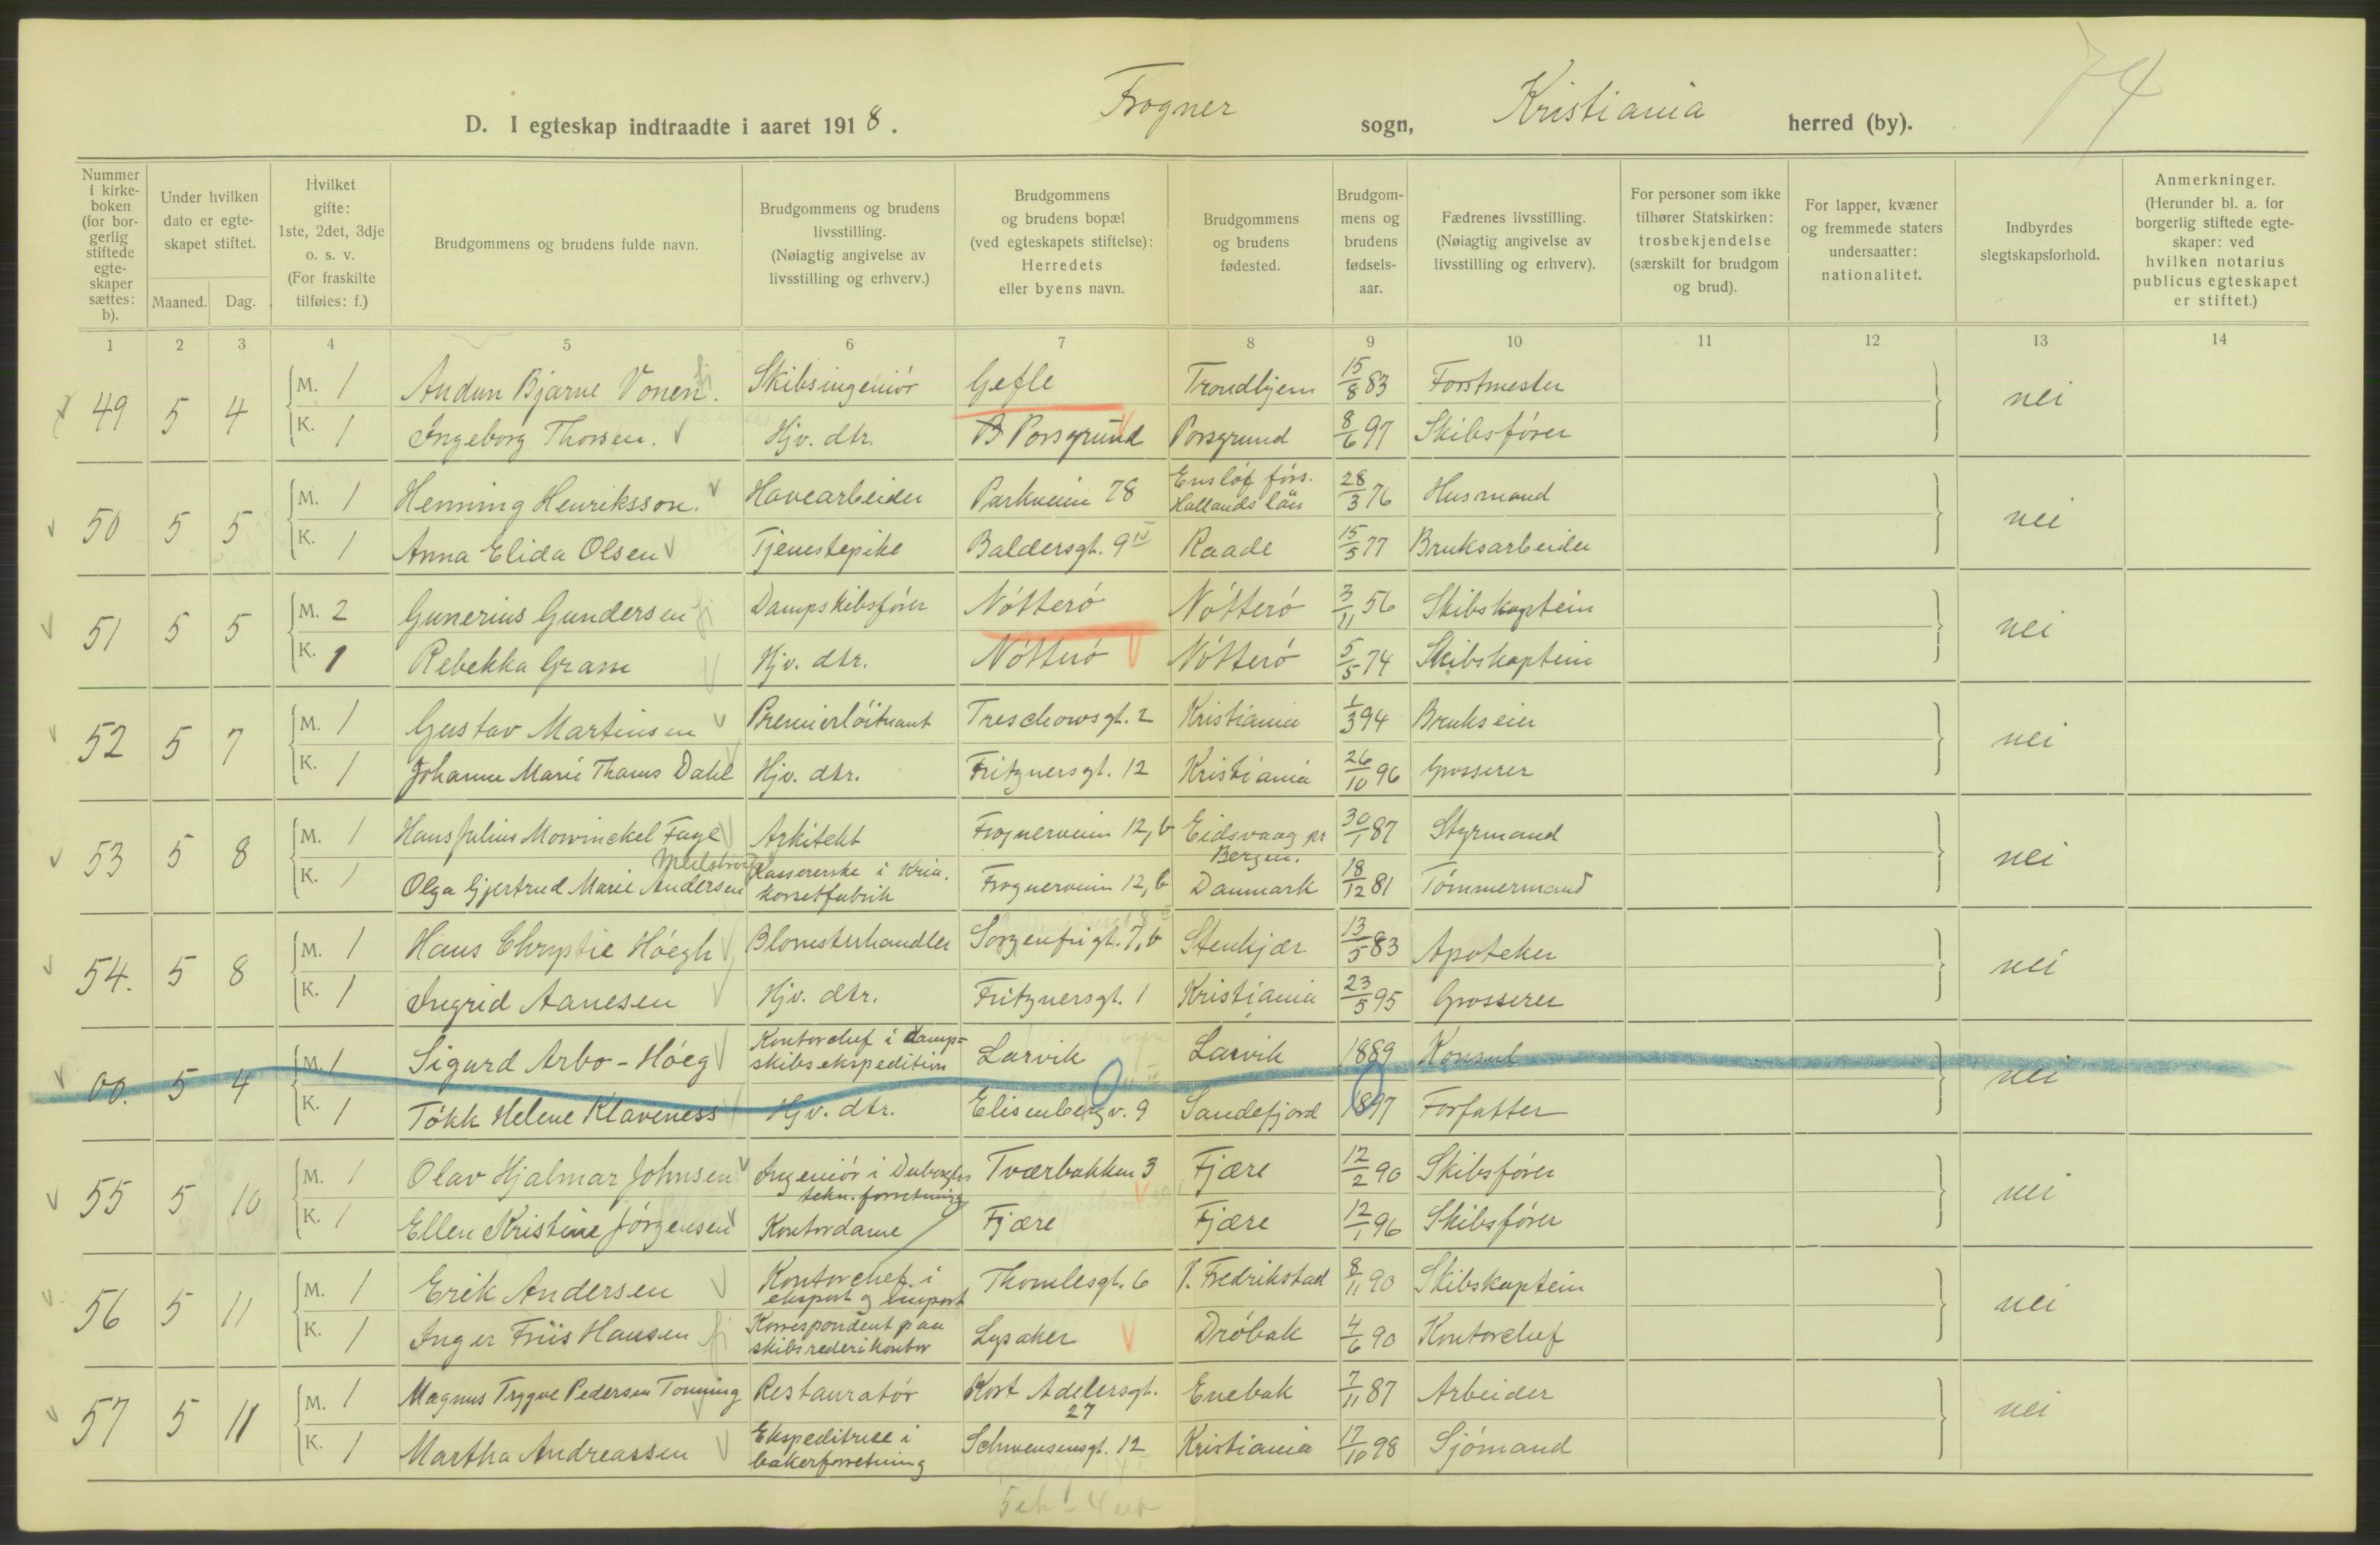 74
D. I egteskap indtraadte i aaret 1918. Frogner sogn, Kristiania herred (by).
Nummer i kirke-boken (for bor-gerlig stiftede egte-skaper sættes: b).
Under hvilken dato er egte-skapet stiftet.
Maaned. Dag.
Hvilket gifte: 1ste, 2det, 3dje o. s. v. (For fraskilte tilføies: f.)
Brudgommens og brudens fulde navn.
Brudgommens og brudens livsstilling. (Nøiagtig angivelse av livsstilling og erhverv.)
Brudgommens og brudens bopæl (ved egteskapets stiftelse): Herredets eller byens navn.
Brudgommens og brudens fødested.
Brudgom-mens og brudens fødsels-aar.
Fædrenes livsstilling. (Nøiagtig angivelse av livsstilling og erhverv).
For personer som ikke tilhører Statskirken: trosbekjendelse (særskilt for brudgom og brud).
For lapper, kvæner og fremmede staters undersaatter: nationalitet.
Indbyrdes slegtskapsforhold.
Anmerkninger. (Herunder bl. a. for borgerlig stiftede egte-skaper: ved hvilken notarius publicus egteskapet er stiftet.)
1 2 3 4 5 6 7 8 9 10 11 12 13 14
49 5 4 M. 1 Audun Bjarne Vonen. Skibsingeniór Gefle Trondhjem 15/8 83 Forstmester nei
K. 1 Ingeborg Thorsen. Hjv. dtr. Porsgrund Porsgrund 8/6 97 Skibsfórer
50 5 5 M. 1 Henning Henriksson. Havearbeider Parkveien 78 Enslóf förs. Hallands län 28/3 76 Husmand nei
K. 1 Anna Elida Olsen Tjenestepike Baldersgt. 9 IV Raade 15/5 77 Bruksarbeider
51 5 5 M. 2 Gunerius Gundersen Dampskibsfórer Nótteró Nótteró 3/11 56 Skibskaptein nei
K. 1 Rebekka Gram Hjv. dtr. Nótteró Nótteró 5/5 74 Skibskaptein
52 5 7 M. 1 Gustav Martinsen Premierlóitnant Treschowsgt. 2 Kristiania 1/3 94 Brukseier nei
K. 1 Johanne Marie Thams Dahl Hjv. dtr. Fritznersgt. 12 Kristiania 26/10 96 Grosserer
53 5 8 M. 1 Hans Julius Mowinckel Faye Arkitekt Frognerveien 12, b Eidsvaag pr Bergen. 30/1 87 Styrmand nei
K. 1 Olga Gjertrud Marie Andersen Kassererske i Kria. korsetfabrik Frognerveien 12, b Danmark 18/12 81 Tómmermand
54. 5 8 M. 1 Hans Chrystie Hóegh Blomsterhandler Sorgenfrigt. 7, b Stenkjær 13/5 83 Apoteker nei
K. 1 Ingrid Aanesen Hjv. dtr. Fritznersgt. 1 Kristiania 23/5 95 Grosserer
00. 5 4 M. 1 Sigurd Arbo-Hóeg Kontorchef i damp= skibsekspedition Larvik Larvik 1889 Konsul nei
K. 1 Tókk Helene Klaveness Hjv. dtr. Elisenbergv. 9 Sandefjord 1897 Forfatter
55 5 10 M. 1 Olav Hjalmar Johnsen Ingeniór i tekn. forretning Tværbakken 3 Fjære 12/2 90 Skibsfórer nei
K. 1 Ellen Kristine Jórgensen Kontordame Fjære Fjære 12/1 96 Skibsfórer
56 5 11 M. 1 Erik Andersen Kontorchef i eksport og import Thomlesgt. 6 V. Fredrikstad 8/11 90 Skibskaptein nei
K. 1 Inger Friis Hansen Korrespondent paa skibsrederikontor Lysaker Dróbak 4/6 90 Kontorchef
57 5 11 M. 1 Magnus Trygve Pedersen Tomning Restauratór Kort Adelersgt. 27 Enebak 7/11 87 Arbeider nei
K. 1 Martha Andreassen Ekspeditrice i bakerforretning Schwensensgt. 12 Kristiania 17/10 98 Sjómand